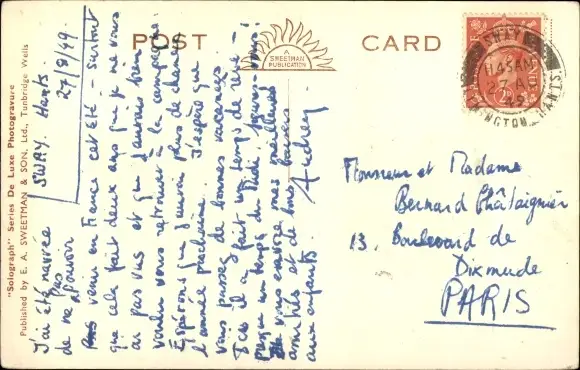 POST CARD
A
SWEETMAN
PUBLICATION
"Solograph" Series De Luxe Photogravure
Published by E. A. SWEETMAN & SON, Ltd., Tunbridge Wells
SWAY. Hants.
27/8/49
J'ai été navrée
de ne pas pouvoir
venir en France cet Eté - surtout
que cela fait deux ans que je ne vous
ai pas vus et que j'aurais bien
voulu vous retrouver à la campagne.
Espérons que j'aurai plus de chance
l'année prochaine. J'espère que
vous passez de bonnes vacances.
Ici il a fait un temps de rêve -
presque un temps du Midi,
vous envoie mes meilleures
amitiés et de bons baisers
aux enfants.
Audrey
Monsieur et Madame
Bernard Châtaignier
13, Boulevard de
Dixmude
PARIS
SWAY
1145AM
HANTS